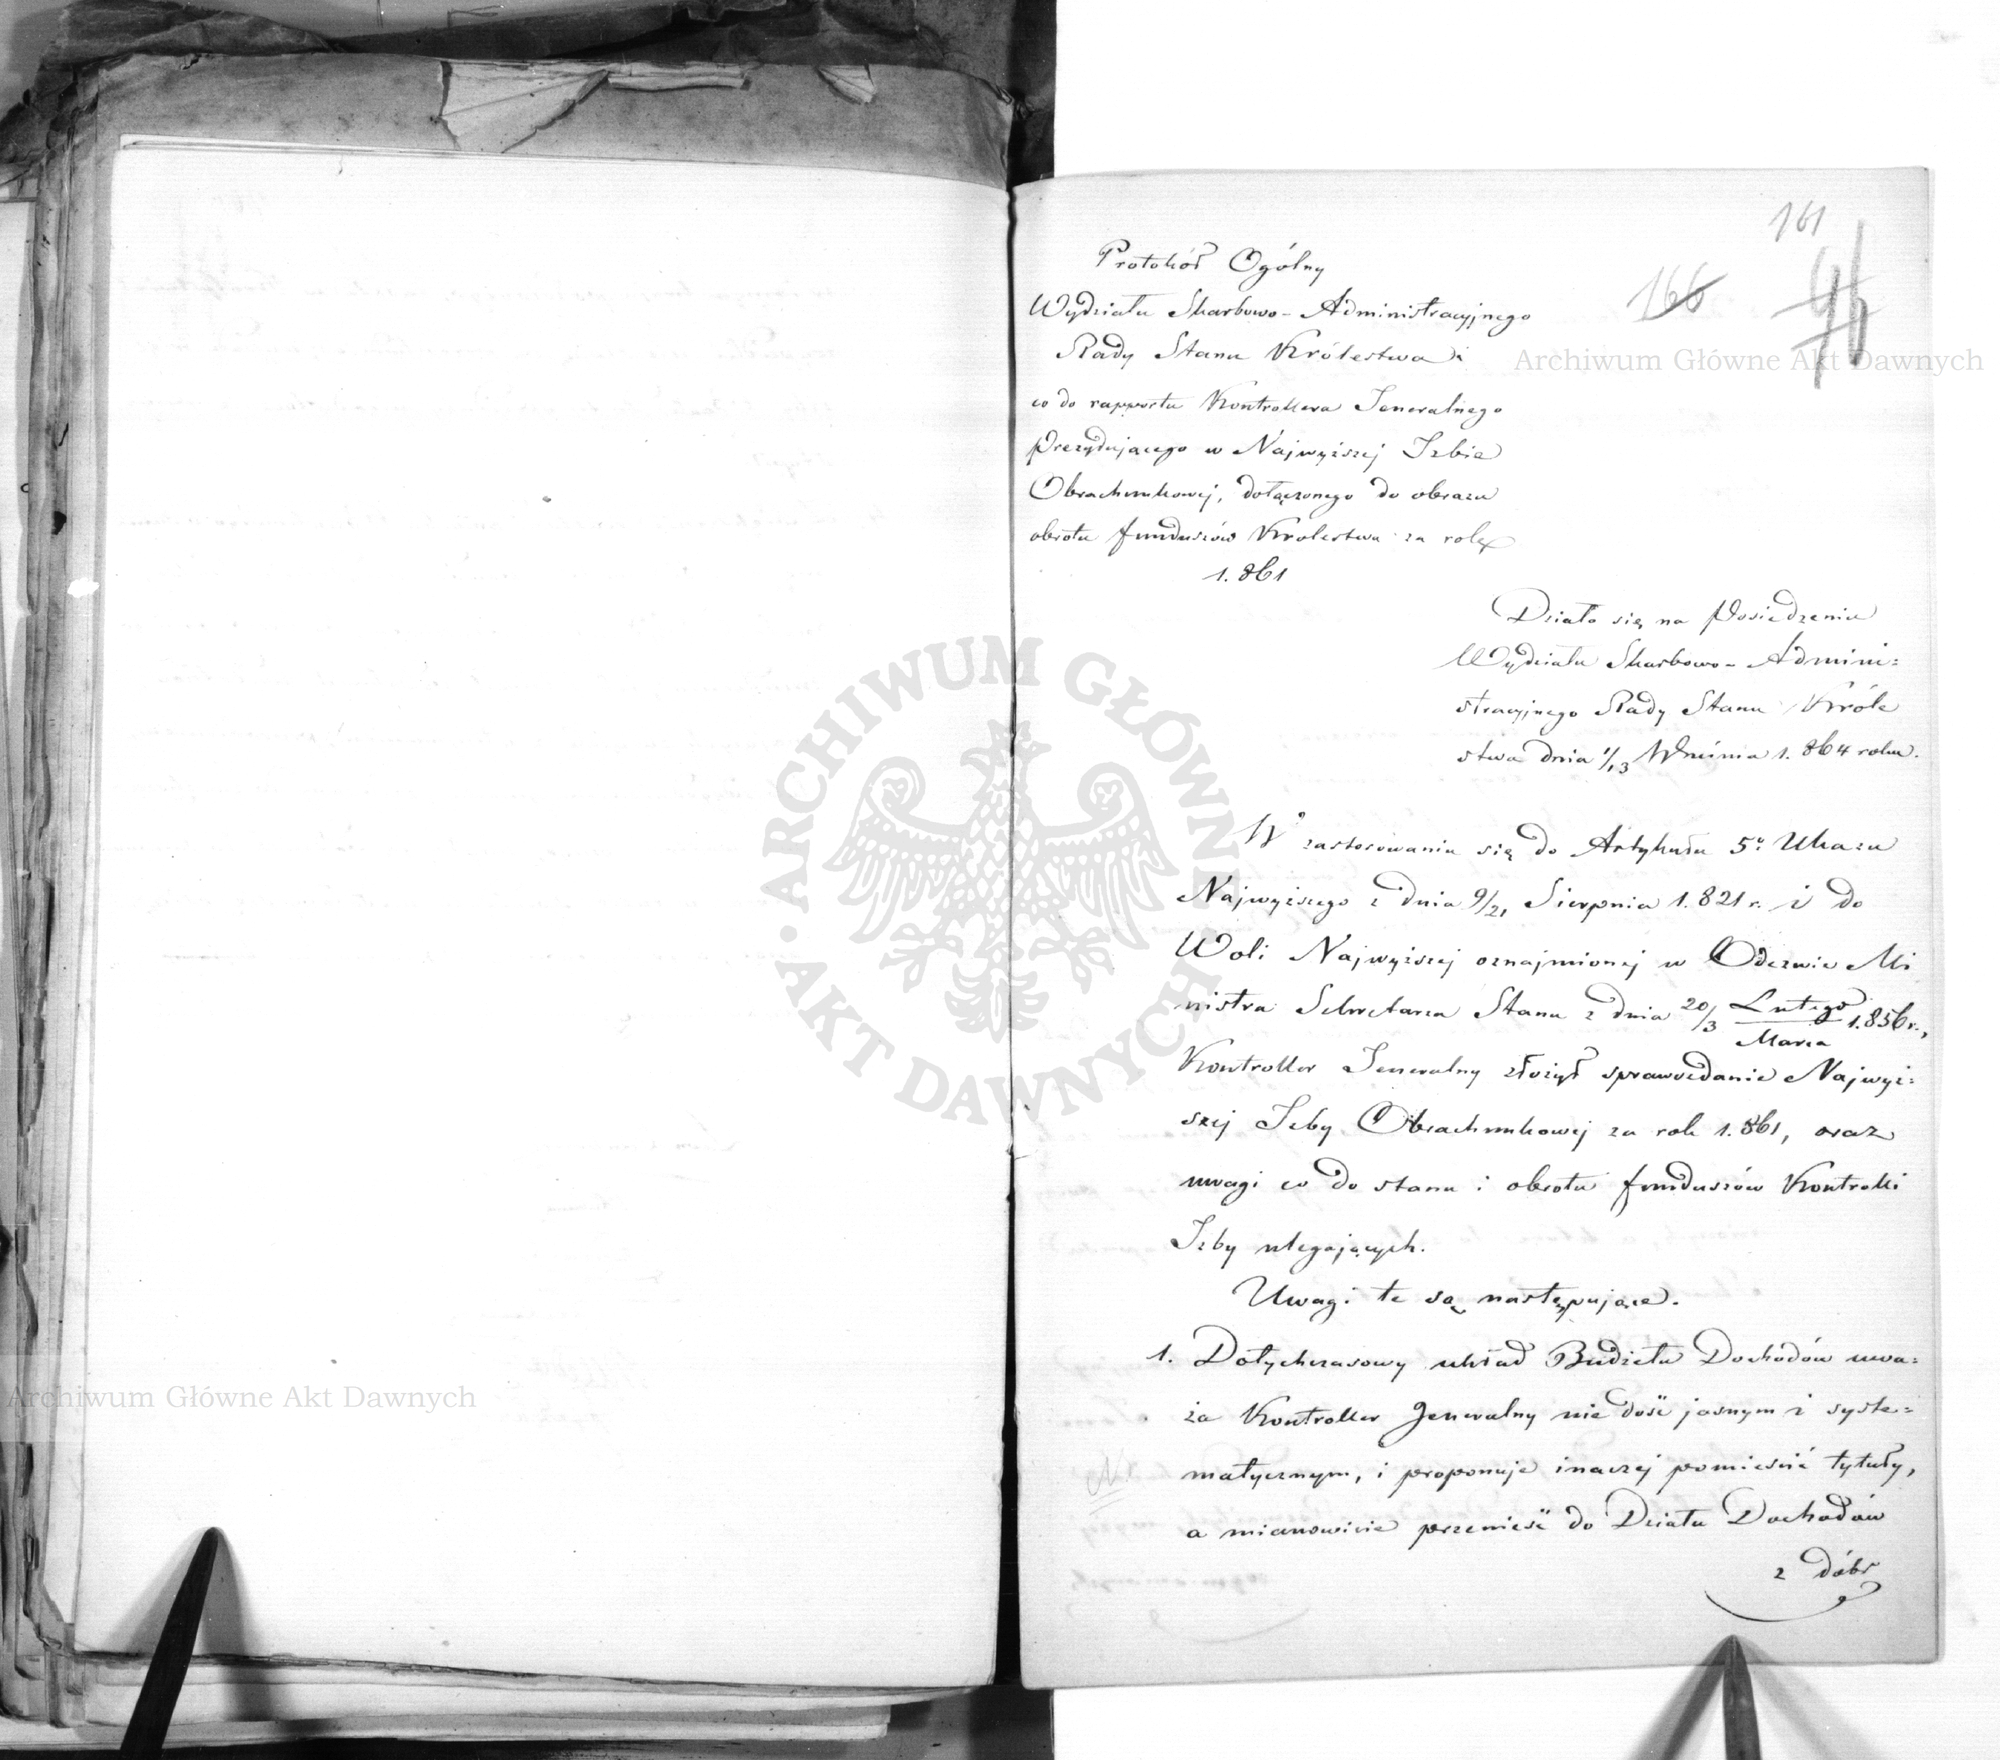 161
166
96
Protokół Ogólny
Wydziału Skarbowo-Administracyjnego
Rady Stanu Królestwa
co do rapportu Kontrollera Jeneralnego
Prezydującego w Najwyższej Izbie
Obrachunkowej, dołączonego do obrazu
obrotu funduszów Królestwa za rok
1.861
Działo się na Posiedzeniu
Wydziału Skarbowo-Admini=
stracyjnego Rady Stanu Króle
stwa dnia 1/13 Września 1.864 roku.
W zastosowaniu się do Artykułu 5º Ukazu
Najwyższego z dnia 9/21 Sierpnia 1.821 r. i do
Woli Najwyższej oznajmionej w Odezwie Mi
nistra Sekretarza Stanu z dnia 20/3 Lutego/Marca 1.856 r.,
Kontroller Jeneralny złożył sprawozdanie Najwyż=
szej Izby Obrachunkowej za rok 1.861, oraz
uwagi co do stanu i obrotu funduszów Kontrolli
Izby ulegających.
Uwagi te są następujące.
1. Dotychczasowy układ Budżetu Dochodów uwa=
ża Kontroller Jeneralny nie dość jasnym i syste=
matycznym, i proponuje inaczej pomieścić tytuły,
a mianowicie przenieść do Działu Dochodów
z dóbr
Archiwum Główne Akt Dawnych
Archiwum Główne Akt Dawnych
ARCHIWUM GŁÓWNE · AKT DAWNYCH ·